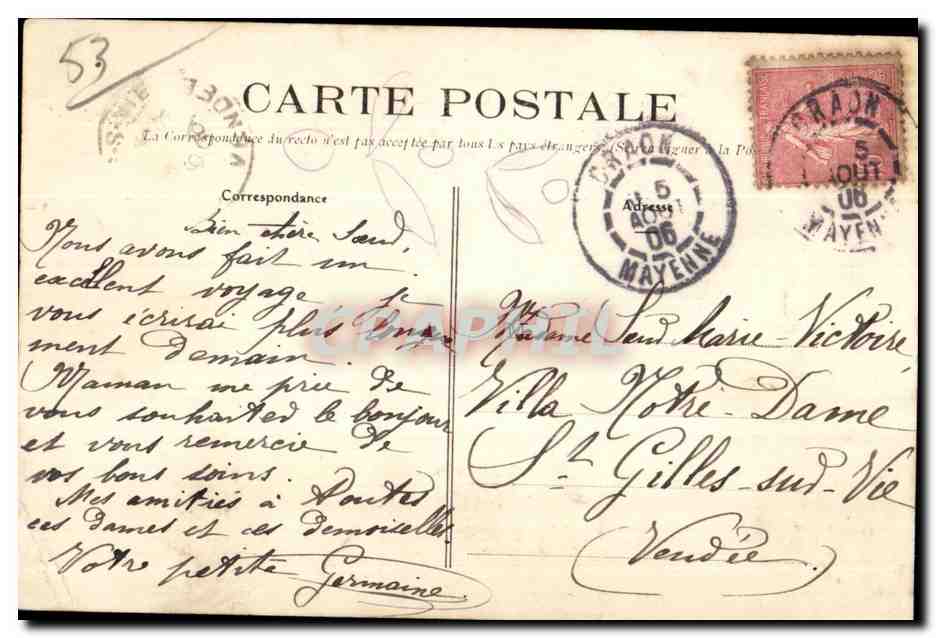 53
CARTE POSTALE
La Correspondance du recto n'est pas acceptée par tous les pays étrangers (Se renseigner à la Poste)
Correspondance
Adresse
CRAON
5
AOUT
06
MAYENNE
CRAON
5
AOUT
06
MAYENNE
VENDÉE
CPAPHIL
Bien chère Sœur,
Nous avons fait un
excellent voyage je
vous écrirai plus longue
ment demain.
Maman me prie de
vous souhaiter le bonjour
et vous remercie de
vos bons soins.
Mes amitiés à toutes
ces dames et ces demoiselles
Votre petite Germaine.
Madame Sœur Marie-Victoire
Villa Notre-Dame
St Gilles-sur-Vie
(Vendée)